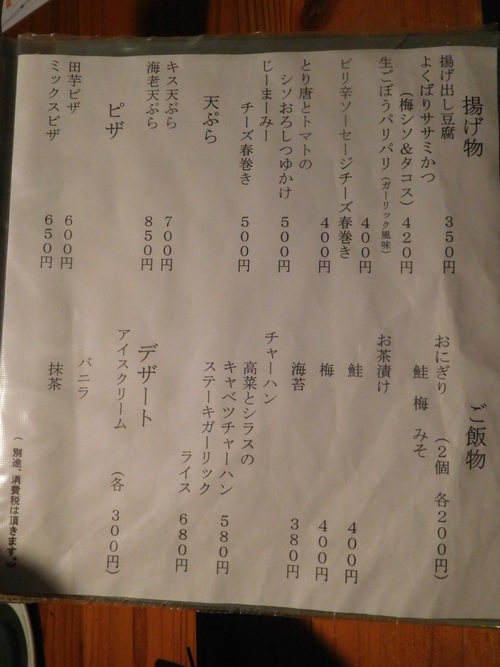 揚げ物
揚げ出し豆腐 350円
よくばりササミかつ
(梅シソ&タコス) 420円
生ごぼうパリパリ(ガーリック風味)
400円
ピリ辛ソーセージチーズ春巻き
400円
とり唐とトマトの
シソおろしつゆかけ 500円
じーまーみー
チーズ春巻き 500円
天ぷら
キス天ぷら 700円
海老天ぷら 850円
ピザ
田芋ピザ 600円
ミックスピザ 650円
ご飯物
おにぎり (2個 各200円)
鮭 梅 みそ
お茶漬け
鮭 400円
梅 400円
海苔 380円
チャーハン
高菜とシラスの
キャベツチャーハン 580円
ステーキガーリック
ライス 680円
デザート
アイスクリーム (各 300円)
バニラ
抹茶
(別途、消費税は頂きます。)